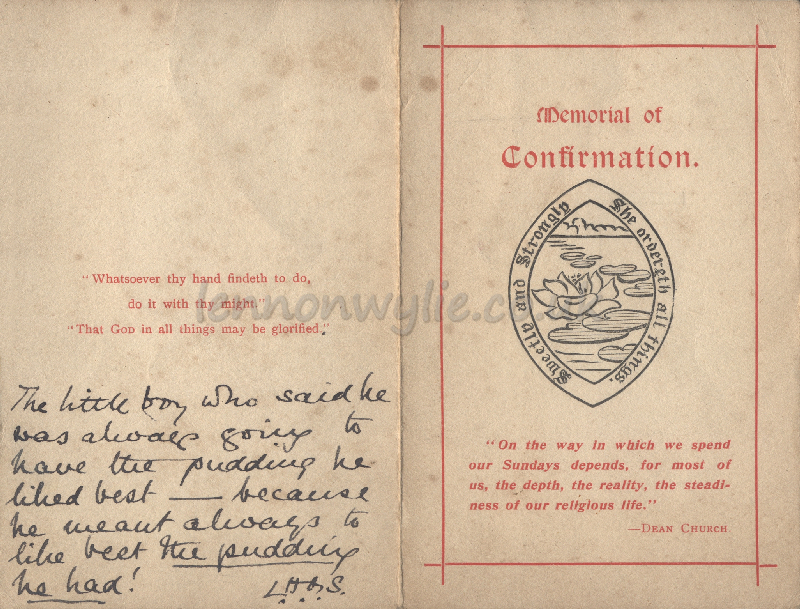 "Whatsoever thy hand findeth to do,
do it with thy might."
"That GOD in all things may be glorified."
The little boy who said he
was always going to
have the pudding he
liked best — because
he meant always to
like best the pudding
he had!
Memorial of
Confirmation.
Sweetly and Strongly
She ordereth all things.
"On the way in which we spend
our Sundays depends, for most of
us, the depth, the reality, the steadi-
ness of our religious life."
—DEAN CHURCH
lennonwylie.co.uk